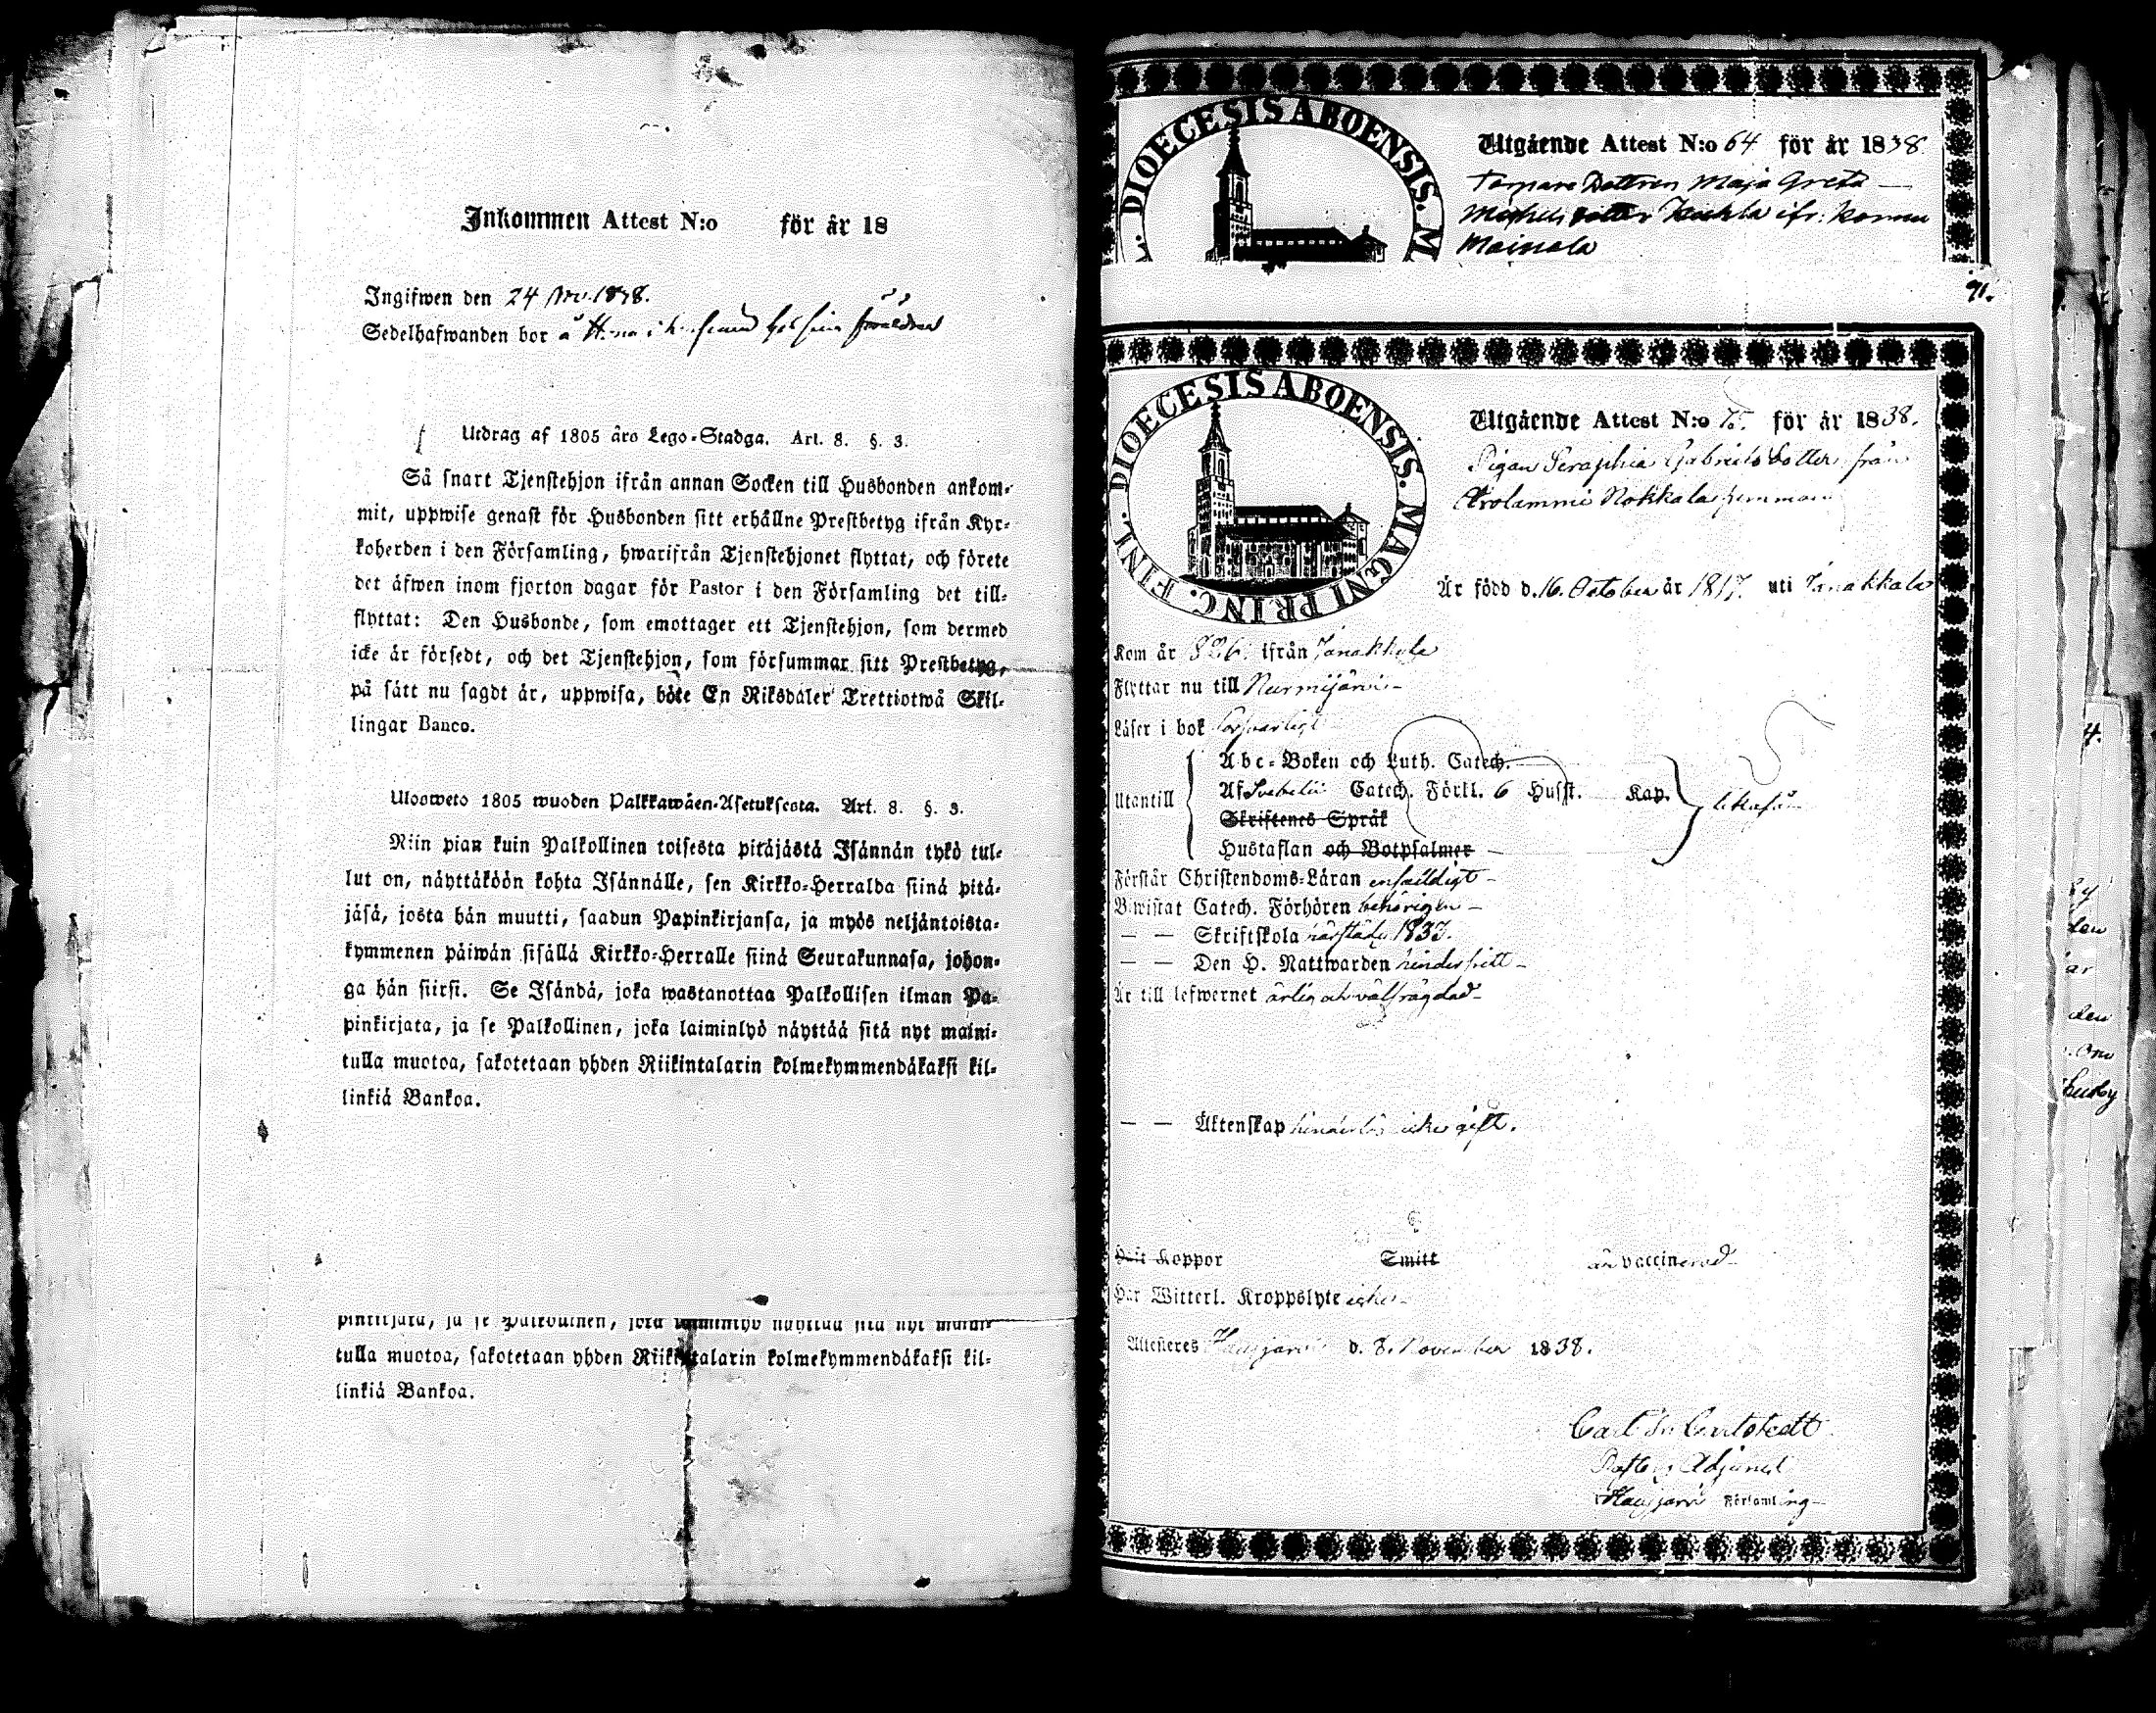 Inkommen Attest N:o för år 18
Ingifwen den 24 Nov. 1838.
Sedelhafwanden bor å hos sina föräldrar
Utdrag af 1805 års Lego-Stadga. Art. 8. §. 3.
Så snart Tjenstehjon ifrån annan Socken till Husbonden ankom-
mit, uppwise genast för Husbonden sitt erhållne Prestbetyg ifrån Kyr-
koherden i den Församling, hwarifrån Tjenstehjonet flyttat, och förete
det äfwen inom fjorton dagar för Pastor i den Församling det till-
flyttat: Den Husbonde, som emottager ett Tjenstehjon, som dermed
icke är försedt, och det Tjenstehjon, som försummar sitt Prestbetyg,
på sätt nu sagdt är, uppwisa, böte En Riksdaler Trettiotwå Skil-
lingar Banco.
Ulosweto 1805 wuoden Palkkawäen-Asetuksesta. Art. 8. §. 3.
Niin pian kuin Palkollinen toisesta pitäjästä Isännän tykö tul-
lut on, näyttäköön kohta Isännälle, sen Kirkko-Herralda siinä pitä-
jäsä, josta hän muutti, saadun Papinkirjansa, ja myös neljäntoista-
kymmenen päiwän sisällä Kirkko-Herralle siinä Seurakunnasa, johon-
ga hän siirsi. Se Isändä, joka wastanottaa Palkollisen ilman Pa-
pinkirjata, ja se Palkollinen, joka laiminlyö näyttää sitä nyt maini-
tulla muotoa, sakotetaan yhden Riikintalarin kolmekymmendäkaksi kil-
linkiä Bankoa.
pinkirjata, ja se Palkollinen, joka laiminlyö näyttää sitä nyt maini-
tulla muotoa, sakotetaan yhden Riikintalarin kolmekymmendäkaksi kil-
linkiä Bankoa.
DIOECESIS ABOENSIS. M
Utgående Attest N:o 64 för år 1838.
Torpare Dottren Maja Greta
Michelsdotter ifr:
Mainala
91.
DIOECESIS ABOENSIS. MAGNI PRINC. FINL.
Utgående Attest N:o 75. för år 1838.
Pigan Seraphia Gabrielsdotter från
Arolammi Nokkala hemman
Är född d. 16. October år 1817. uti Janakkala
Kom år 1826. ifrån Janakkala
Flyttar nu till Nurmijärvi
Läser i bok försvarligt
Abc-Boken och Luth. Catech.
Utantill Af Svebelii Catech. Förkl. 6 Husst. Kap. likaså
Skriftenes Språk
Hustaflan och Botpsalmer
Förstår Christendoms-Läran enfaldigt
Bewistat Catech. Förhören behörigen
— — Skriftskola härstädes 1833.
— — Den H. Nattwarden hinderfritt
Är till lefwernet ärlig och välfrägdad
— — Äktenskap hinderlös icke gift.
Haft Koppor Smitt är vaccinerad
Har Witterl. Kroppslyte icke
Attesteres Hausjärvi d. 8. November 1838.
Carl Carlstedt
Pastors Adjunct
i Hausjärvi Församling